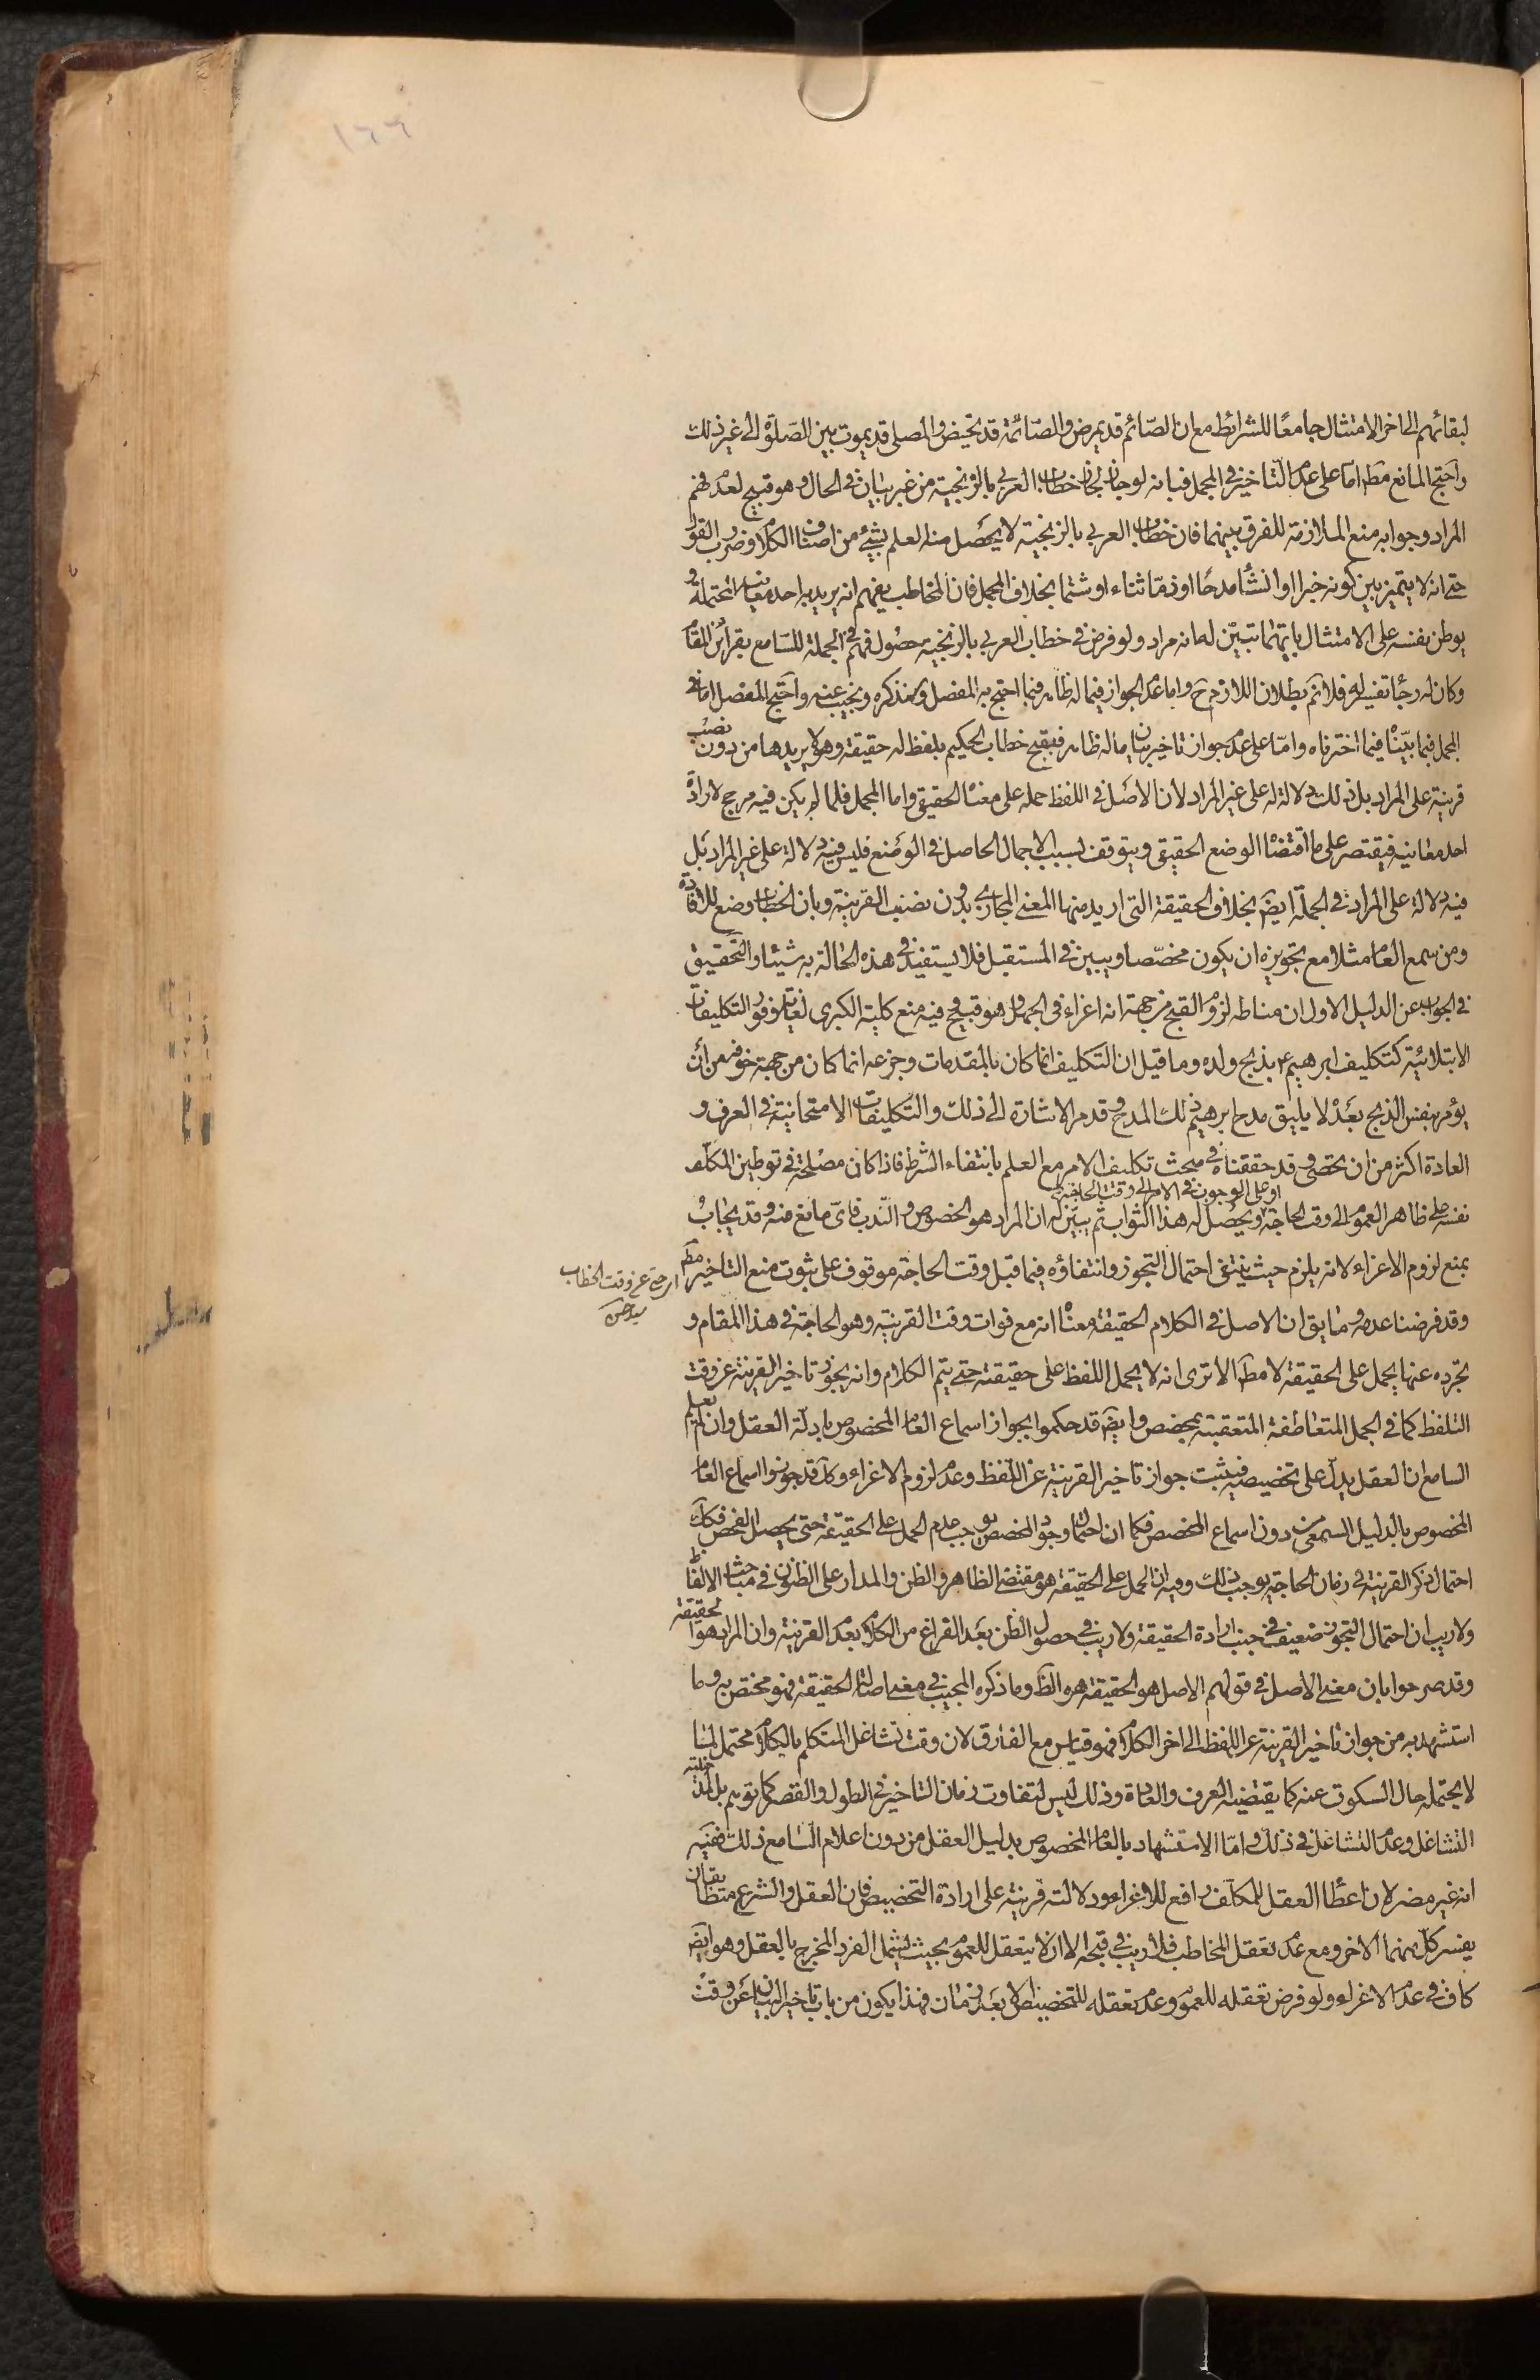 ١٦٦
لبقائهم الى اخر الامتثال جامعًا للشرائط مع ان الصّائم قد يمرض والصّائمة قد تحيض والمصلى قد يموت بين الصّلوة الى غير ذلك
واحتج المانع مطَ امّا على عدم التّاخير في المجمل فبانه لو جاز لجاز خطاب العربي بالزنجية من غير بيان في الحال وهو قبيح لعدم فهم
المراد وجوابه منع الملازمة للفرق بينهما فان خطاب العربي بالزنجية لا يحصل منه العلم بشئ من اصناف الكلام وضروب القول
حتى انه لا يتميز بين كونه خبرا او انشأ مدحًا او ذمّا ثناء او شتما بخلاف المجمل فان المخاطب يفهم انه يريد به احد معانيه المحتملة و
يوطن نفسه على الامتثال بايّهما تبيّن له انه مراد ولو فرض في خطاب العربي بالزنجيه حصُول فهم في الجملة للسّامع بقرائن المقام
وكان له رجًا تفسيره فلا نم بطلان اللازم حَ واما عدم الجواز فيما له ظاهر فبما احتج به المفصل وسنذكره ونجيب عنه واحتج المفصل اما في
المجمل فبما بيّنّا فيما اخترناه وامّا على عدم جواز تاخير بيان ما له ظاهر فبقبح خطاب الحكيم بلفظ له حقيقة وهو لا يريدها من دون نصب
قرينة على المراد بل ذلك دلالة له على غير المراد لان الاصل في اللفظ حمله على معناه الحقيقي واما المجمل فلما لم يكن فيه مرجح لارادة
احد معانيه فيقتصر على ما اقتضاه الوضع الحقيقي ويتوقف بسبب الاجمال الحاصل في الوضع فليس فيه دلالة على غير المراد بل
فيه دلالة على المراد في الجملة ايضَ بخلاف الحقيقة التى اريد منها المعنى المجازى بدون نصب القرينة وبان الخطاب وضع للافادة
ومن سمع العام مثلا مع تجويزه ان يكون مخصّصا ويبين في المستقبل فلا يستفيد في هذه الحالة به شيئا والتحقيق
في الجواب عن الدليل الاول ان مناطه لزوم القبح من جهة انه اغراء في الجهل وهو قبيح فيه منع كلية الكبرى لغاية وفور التكليفات
الابتلائية كتكليف ابرهيم ع بذبح ولده وما قيل ان التكليف انما كان بالمقدمات وجزعه انما كان من جهة خوفه من ان
يؤمر بنفس الذبح بعَدُ لا يليق مدح ابرهيم ذلك المدح وقد مر الاشارة الى ذلك والتكليفات الامتحانية في العرف و
العادة اكثر من ان تحصى وقد حققناه في مبحث تكليف الامر مع العلم بانتفاء الشرط فاذا كان مصلحة في توطين المكلف
او على الوجوب في الامر الى وقت الحاجة
نفسه على ظاهر العموم الى وقت الحاجة ويحصُل له هذا الثواب ثم يبيّن له ان المراد هو الخصوص والنّدب فاىّ مانع منه وقد يجاب
بمنع لزوم الاغراء لانه يلزم حيث ينتفي احتمال التجوز وانتفاؤه فيما قبل وقت الحاجة موقوف على ثبوت منع التاخير مطَ
اى حتى عن وقت الخطاب
وقد فرضنا عدمه وما يق ان الاصل في الكلام الحقيقة معناه انه مع فوات وقت القرينة وهو الحاجة في هذا المقام و
تجرّده عنها يحمل على الحقيقة لا مطَ الا ترى انه لا يحمل اللفظ على حقيقته حتى يتم الكلام وانه يجوز تاخير القرينة عن وقت
التلفظ كما في الجمل المتعاطفة المتعقبة بمخصص وايضَ قد حكموا بجواز اسماع العام المخصوص بادلة العقل وان لم يعلم
السامع ان العقل يدل على تخصيصه فيثبت جواز تاخير القرينة عن اللّفظ وعدم لزوم الاغراء وكذا قد جوزوا اسماع العام
المخصوص بالدليل السمعى من دون اسماع المخصص فكما ان احتمال وجود المخصص يوجب عدم الحمل على الحقيقة حتى يحصل الفحص فكك
احتمال ذكر القرينة في زمان الحاجة يوجب ذلك وفيه ان الحمل على الحقيقة هو مقتضى الظاهر والظن والمدار على الظنون في مباحث الالفاظ
ولا ريب ان احتمال التجوز ضعيف في جنب ارادة الحقيقة ولا ريب في حصول الظن بعد الفراغ من الكلام بعدم القرينة وان المراد هو الحقيقة
وقد صرحوا بان معنى الاصل في قولهم الاصل هو الحقيقة هو الظَ وما ذكره المجيب في معنى اصالة الحقيقة فهو مختص به وما
استشهد به من جواز تاخير القرينة عن اللفظ الى اخر الكلام فهو قياس مع الفارق لان وقت تشاغل المتكلم بالكلام محتمل لما
لا يحتمله حال السكوت عنه كما يقتضيه العرف والعادة وذلك ليس لتفاوت زمان التاخير في الطول والقصر كما توهم بل لمدخلية
التشاغل وعدم التشاغل في ذلك وامّا الاستشهاد بالعام المخصوص بدليل العقل من دون اعلام السّامع ذلك ففيه
انه غير مضر لان اعطاء العقل للمكلف رافع للاغراء ودلالته قرينة على ارادة التخصيص فان العقل والشرع متطابقان
يفسر كلّ منهما الاخر ومع عدم تعقل المخاطب فلا ريب في قبحه الا ان لا يتعقل للعموم بحيث يشمل الفرد المخرج بالعقل وهو ايضَ
كاف في عدم الاغراء ولو فرض تعقله للعموم وعدم تعقله للتخصيص الا بعد زمان فهذا يكون من باب تاخير البيان عن وقت